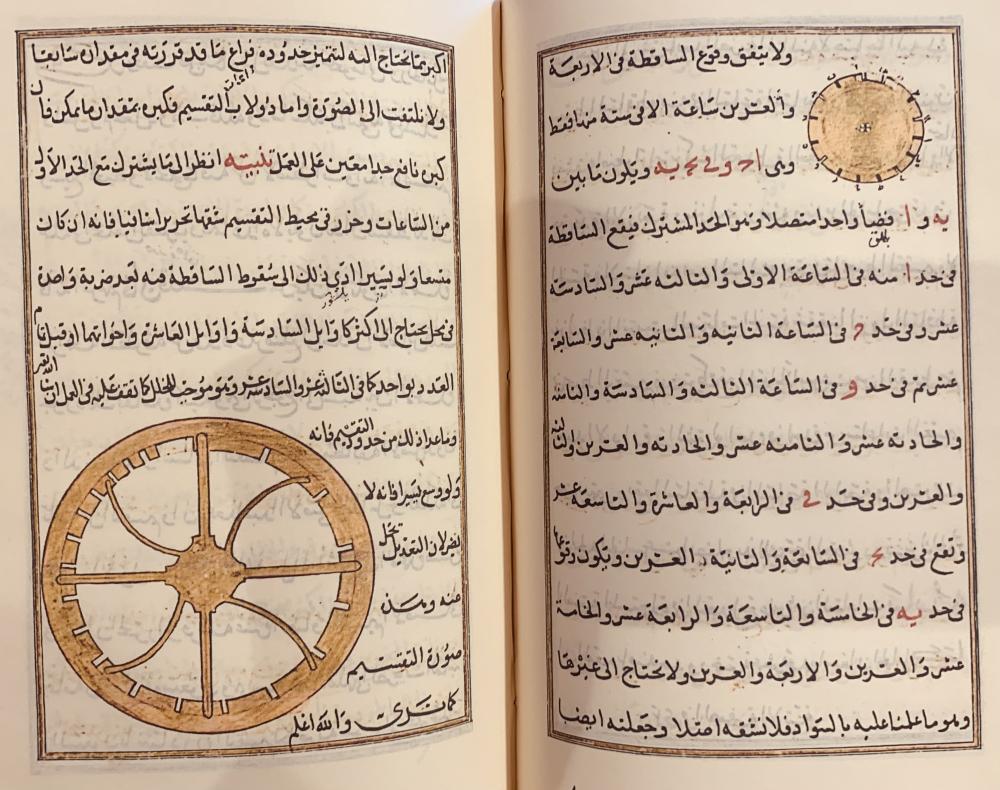 ولا يتفق وقوع الساقطة فى الاربعة
والعشرين ساعة الا فى ستة منها فقط
وهى ا ح و ل ع يه ويكون ما بين
يه و ا فضاً واحدا متصلا وهو الحد المشترك فيقع الساقطة
فى حد ا منه فى الساعة الاولى والثالثه عشر والسادسة
عشر وفى حد ح فى الساعة الثانيه والثانيه عشر والسابعة
عشر ثم فى حد و فى الساعة الثالثه والسادسة والثامنه
والحادثه عشر والثامنه عشر والحادثه والعشرين والثالثه
والعشرين وفى حد فى الرابعة والعاشرة والتاسعة عشر
وتقع فى حد فى السابعة والثانية والعشرين ويكون وقوعها
فى حد يه فى الخامسة والتاسعة والرابعة عشر والخامسة
عشر والعشرين والاربعة والعشرين ولا تحتاج الى غيرها
وهو ما علمنا عليه بالسواد فلا نشقه اصلا وجعلنه ايضا
اكبر مما يحتاج اليه لتتميز حدوده فراغ ما قد قررته فى مقدار سابعا
ولا نلتفت الى الصورة واما دولاب التقسيم فكبره بمقدار ما يمكن فان
كبره نافع جدا معين على العمل تنبيه انظر الى ما يشترك مع الحد الاول
من الساعات وحزر فى محيط التقسيم شقها تحريرا شافيا فانه ان كان
متسعا ولو يسيرا ادى ذلك الى سقوط الساقطة منه بعد ضربة واحدة
فى محل يحتاج الى اكثر كاوايل السادسة واوايل العاشرة واخواتها او قبل تمام
العدد بواحد كما فى الثالثة عشر والسادسة عشر وهو موجب للخلل كما تقف عليه فى العمل ان شا الله تعالى
وما عدا ذلك من حدود التقسيم فانه
ولو وسع يسيرا فانه لا
يضر لان التعديل يحمل
عنه وهذه
صورة التقسيم
كما ترى والله اعلم